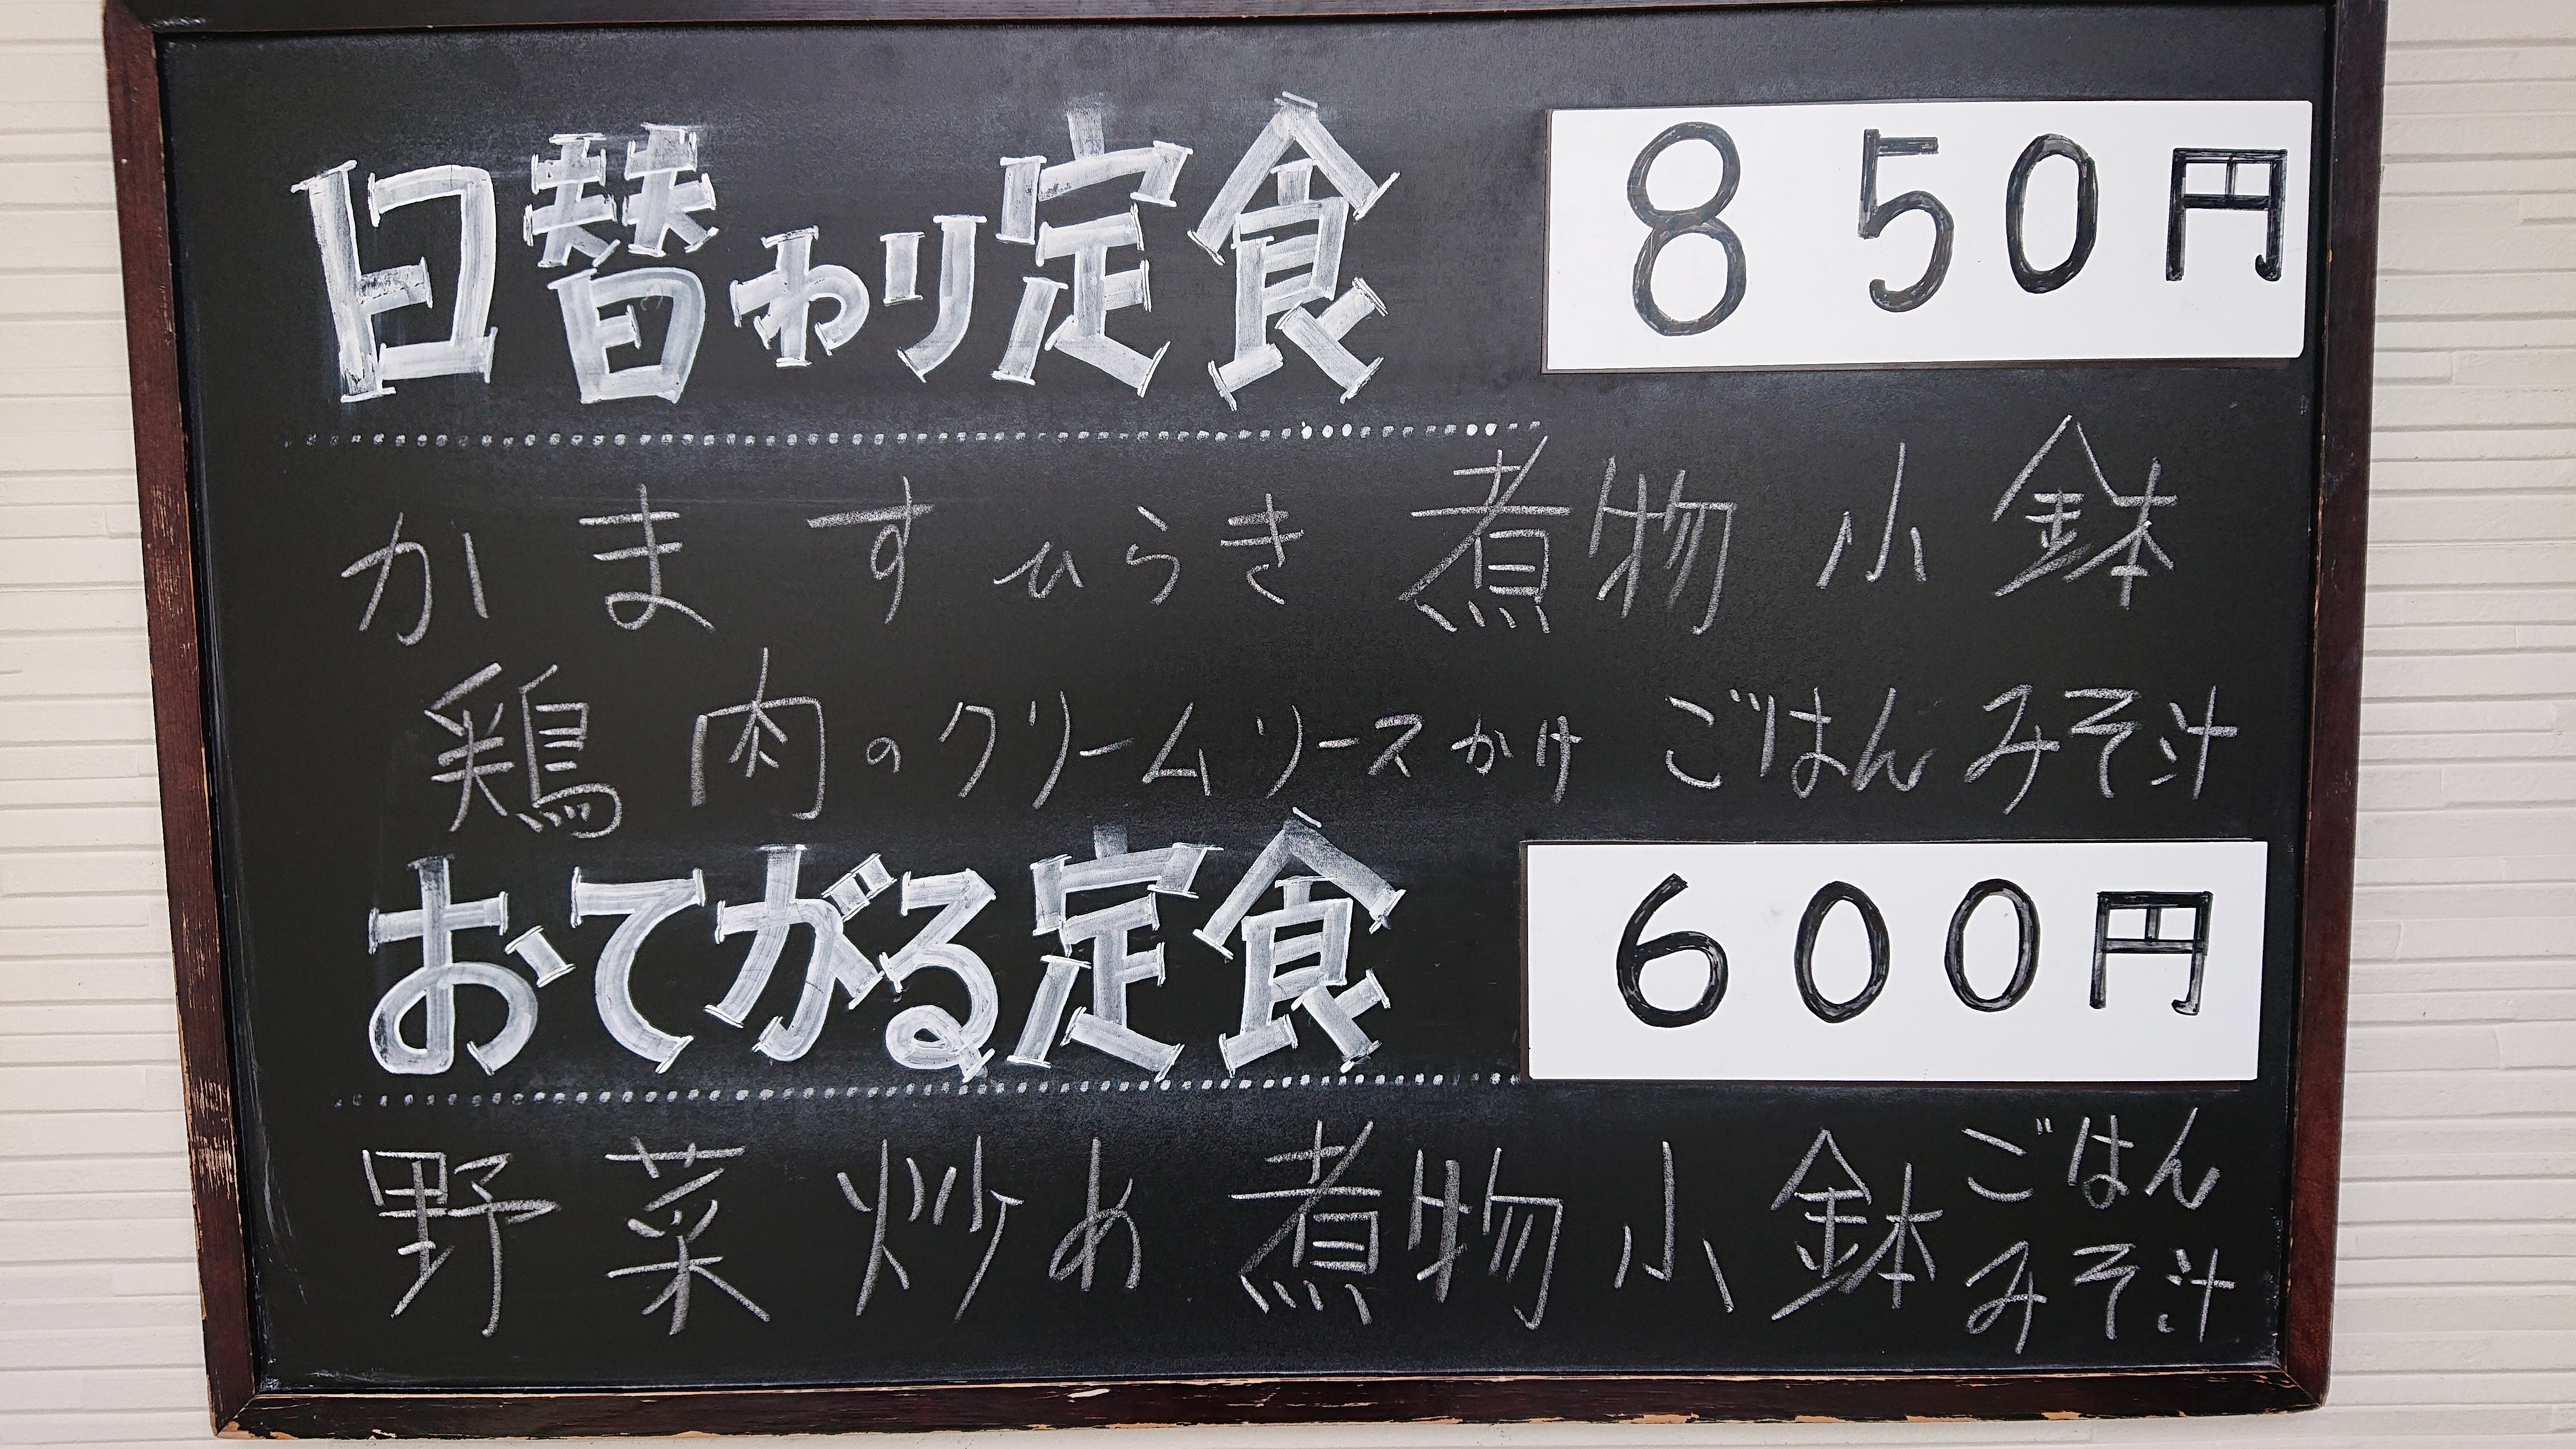 日替わり定食 850円
かますひらき 煮物 小鉢
鶏肉のクリームソースかけ ごはん みそ汁
おてがる定食 600円
野菜炒め 煮物 小鉢 ごはん
みそ汁